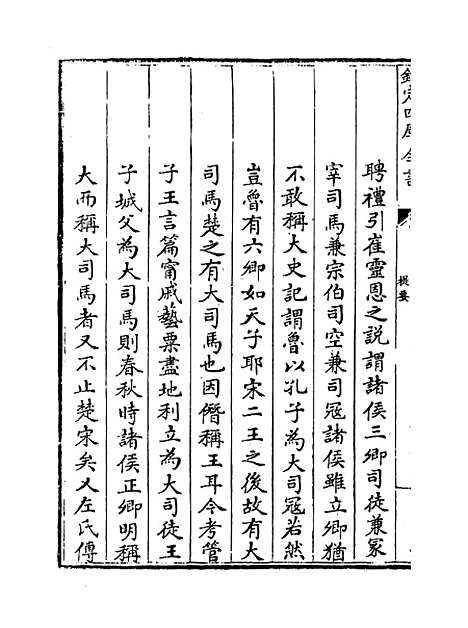 欽定四庫全書
提要
聘禮引崔靈恩之説謂諸侯三卿司徒兼冢
宰司馬兼宗伯司空兼司冦諸侯雖立卿猶
不敢稱大史記謂魯以孔子為大司冦若然
豈魯有六卿如天子耶宋二王之後故有大
司馬楚之有大司馬也因僭稱王耳今考管
子王言篇甯戚藝粟盡地利立為大司徒王
子城父為大司馬則春秋時諸侯正卿明稱
大而稱大司馬者又不止楚宋矣又左氏傳